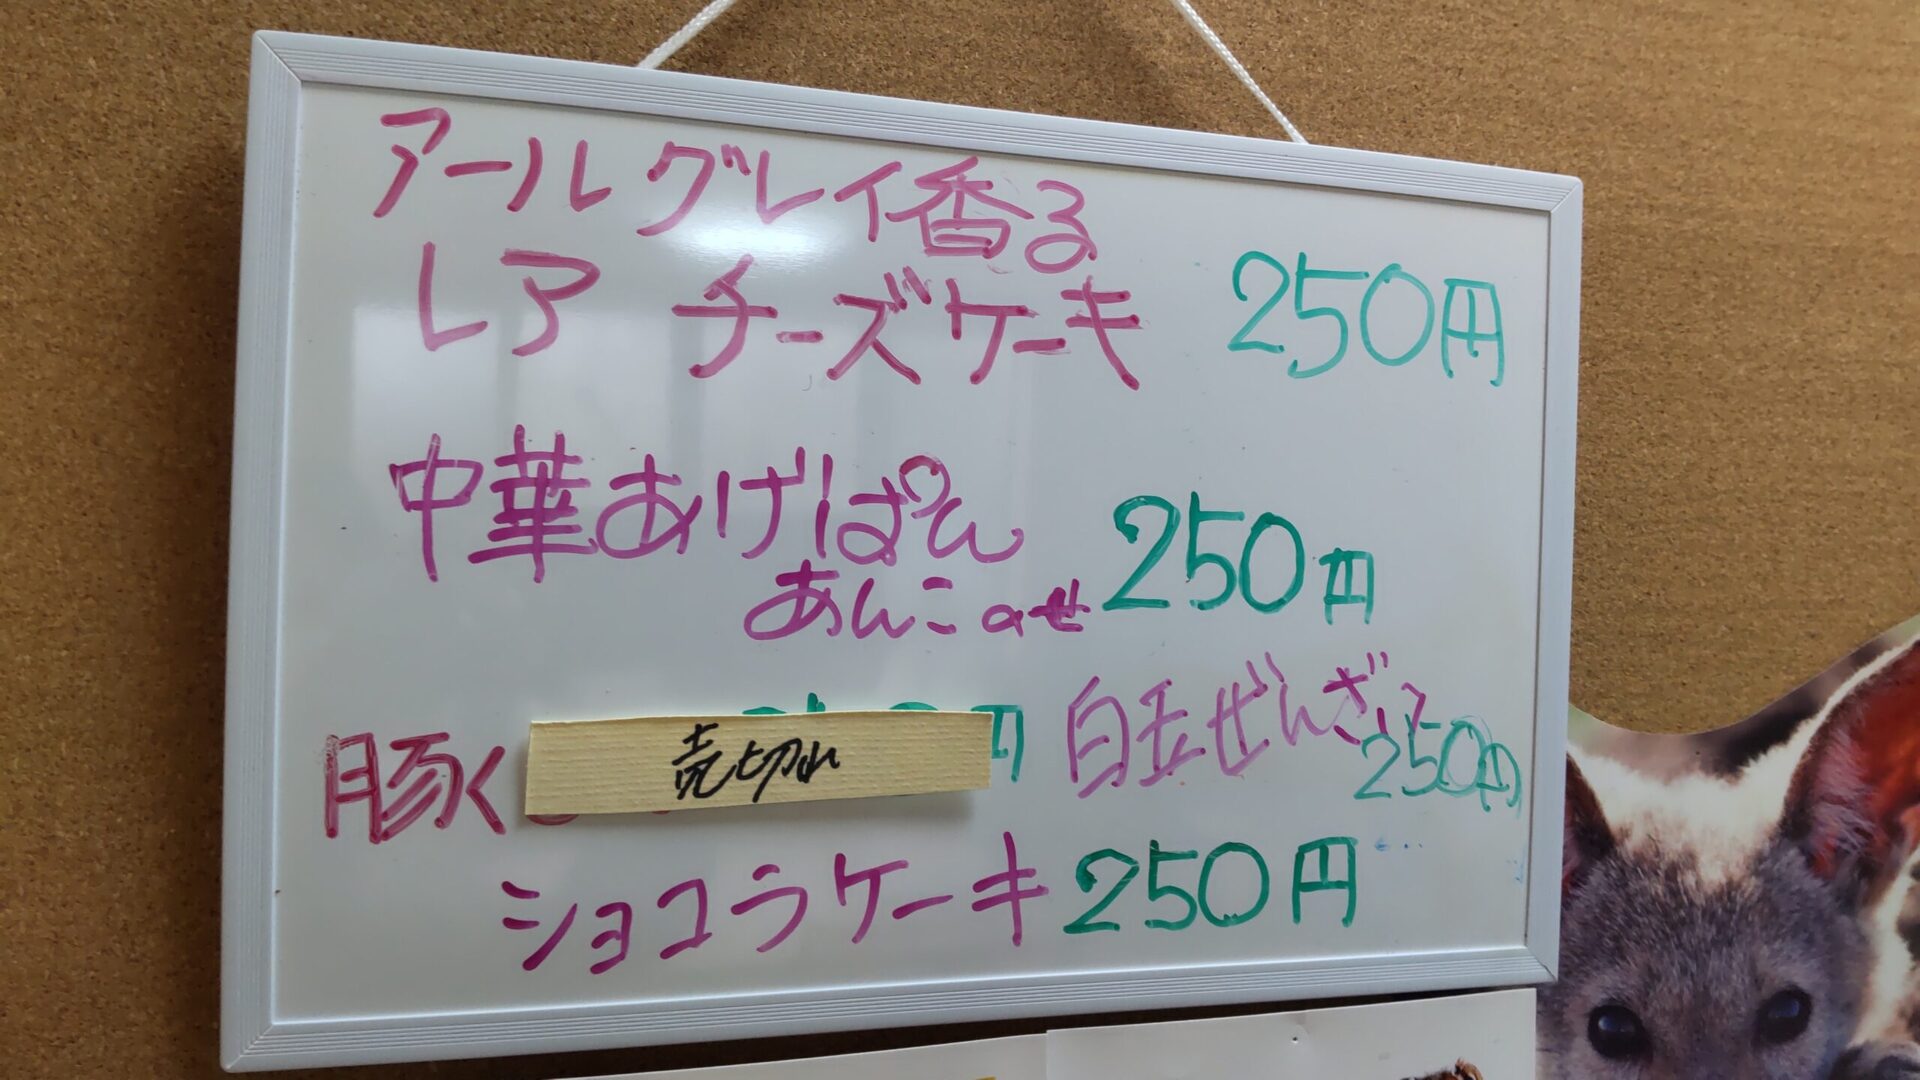 アールグレイ香る
レアチーズケーキ 250円
中華あげぱん
あんこのせ 250円
豚く 売切れ 円
白玉ぜんざい 250円
ショコラケーキ 250円